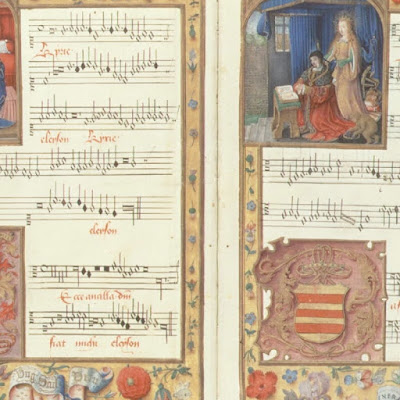 Kyrie
eleyson Kyrie
eleyson
Ecce ancilla dm̄
fiat michi eleyson